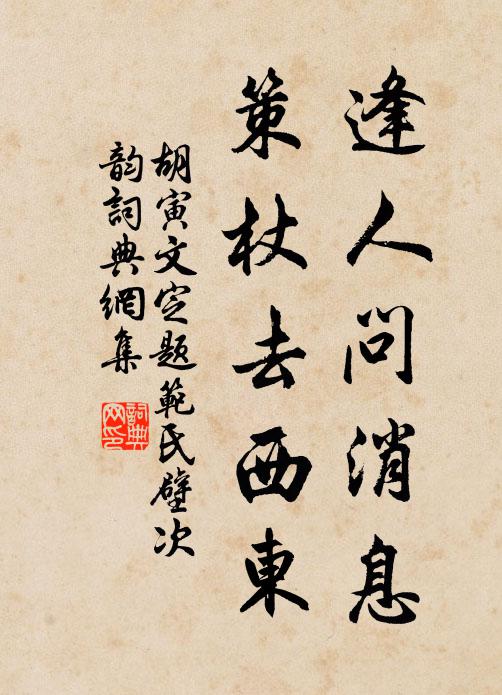 逢人問消息
策杖去西東
胡寅文定題範氏壁次
韵詞典網集
詞典
网印